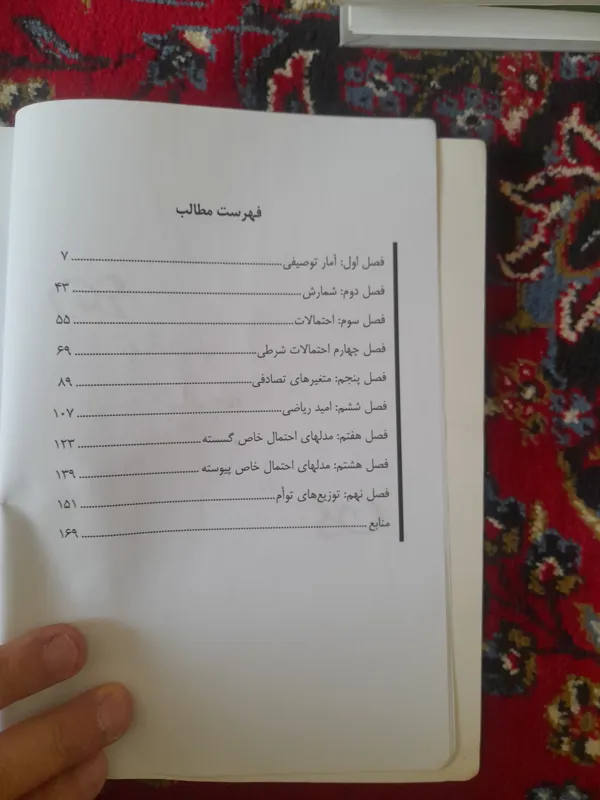 فهرست مطالب
فصل اول: آمار توصیفی ........ ۷
فصل دوم: شمارش ........ ۴۳
فصل سوم: احتمالات ........ ۵۵
فصل چهارم احتمالات شرطی ........ ۶۹
فصل پنجم: متغیرهای تصادفی ........ ۸۹
فصل ششم: امید ریاضی ........ ۱۰۷
فصل هفتم: مدلهای احتمال خاص گسسته ........ ۱۲۳
فصل هشتم: مدلهای احتمال خاص پیوسته ........ ۱۳۹
فصل نهم: توزیع‌های توأم ........ ۱۵۱
منابع ........ ۱۶۹